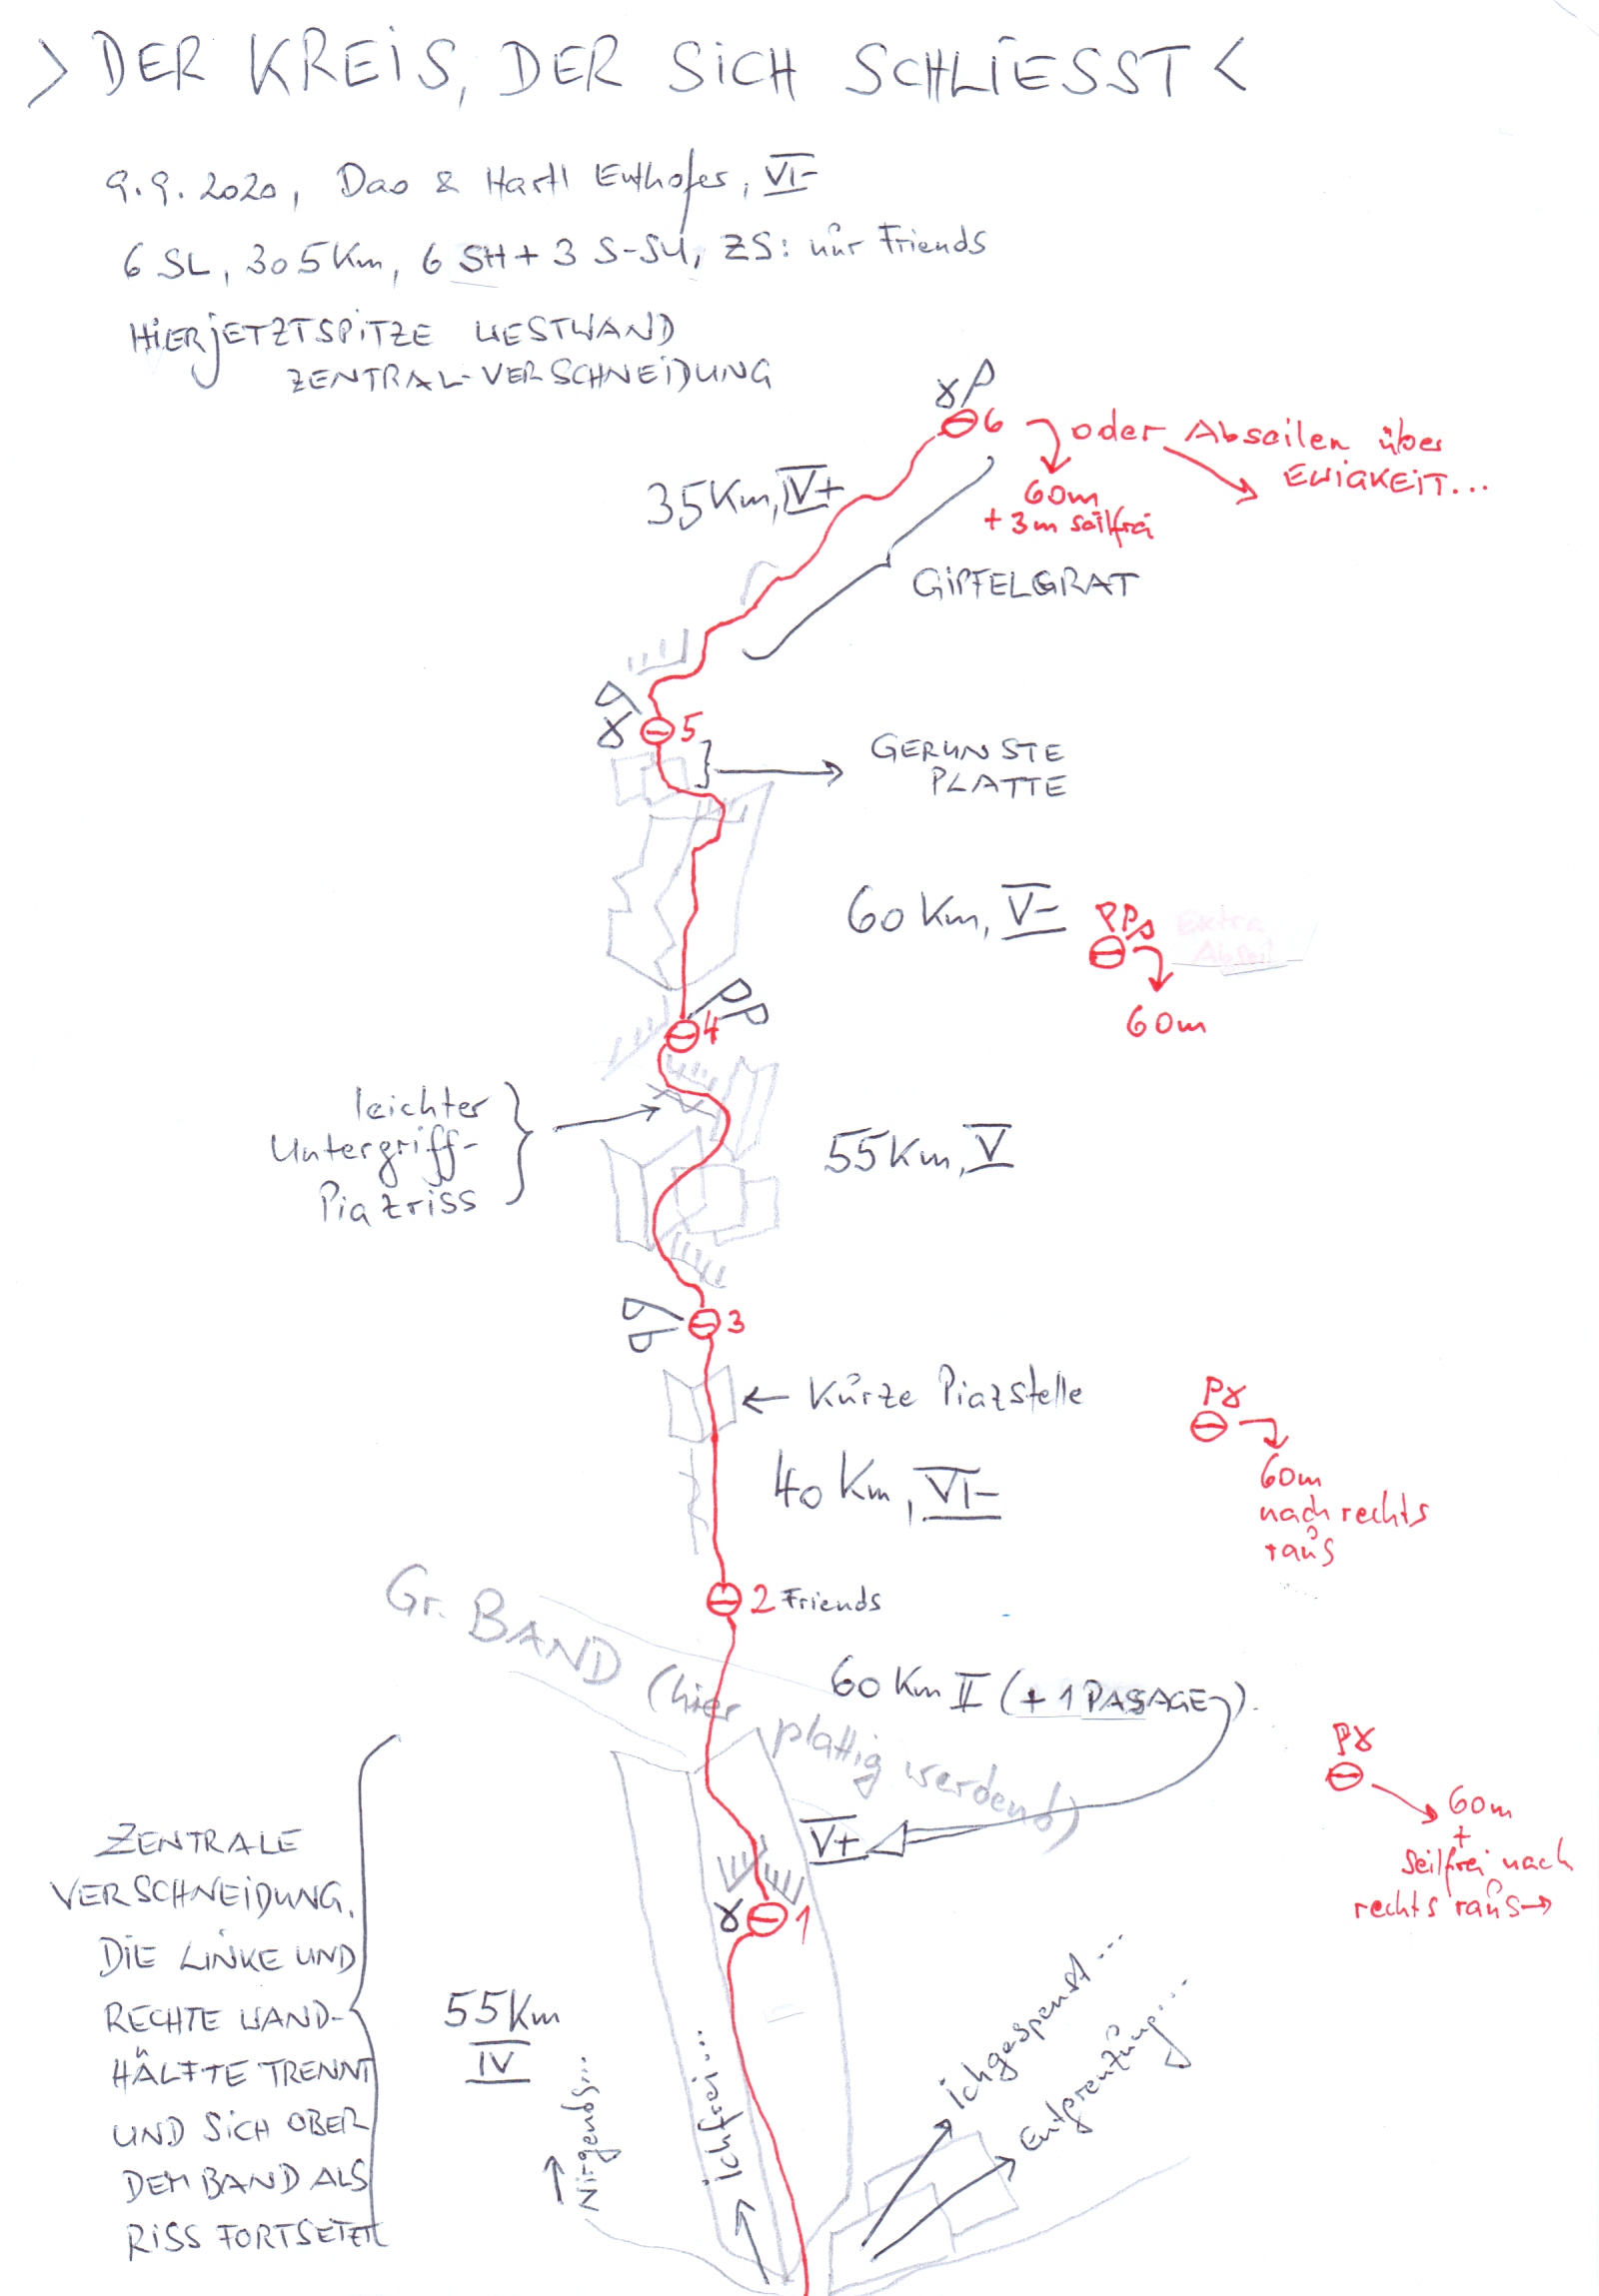 > DER KREIS, DER SICH SCHLIESST <
9.9.2020, Dao & Hartl Euthofer, VI-
6 SL, 305 Km, 6 SH + 3 S-SU, ZS: nur Friends
HIERJETZTSPITZE WESTWAND
ZENTRAL-VERSCHNEIDUNG
6
oder Abseilen über
EWIGKEIT...
60m
+ 3m seilfrei
35 Km, IV+
GIPFELGRAT
5
GERUNSTE
PLATTE
60 Km, V-
Extra
Abseil
60m
4
leichter
Untergriff-
Piazriss
55 Km, V
3
← Kurze Piazstelle
40 Km, VI-
60m
nach rechts
raus
2 Friends
Gr. BAND (hier plattig werdend)
60 Km II (+ 1 PASSAGE)
V+
60m
+
Seilfrei nach
rechts raus→
1
ZENTRALE
VERSCHNEIDUNG,
DIE LINKE UND
RECHTE WAND-
HÄLFTE TRENNT
UND SICH OBER
DEM BAND ALS
RISS FORTSETZT
55 Km
IV
Nirgends...
ichfrei...
ichgespenst...
Entgrenzung...